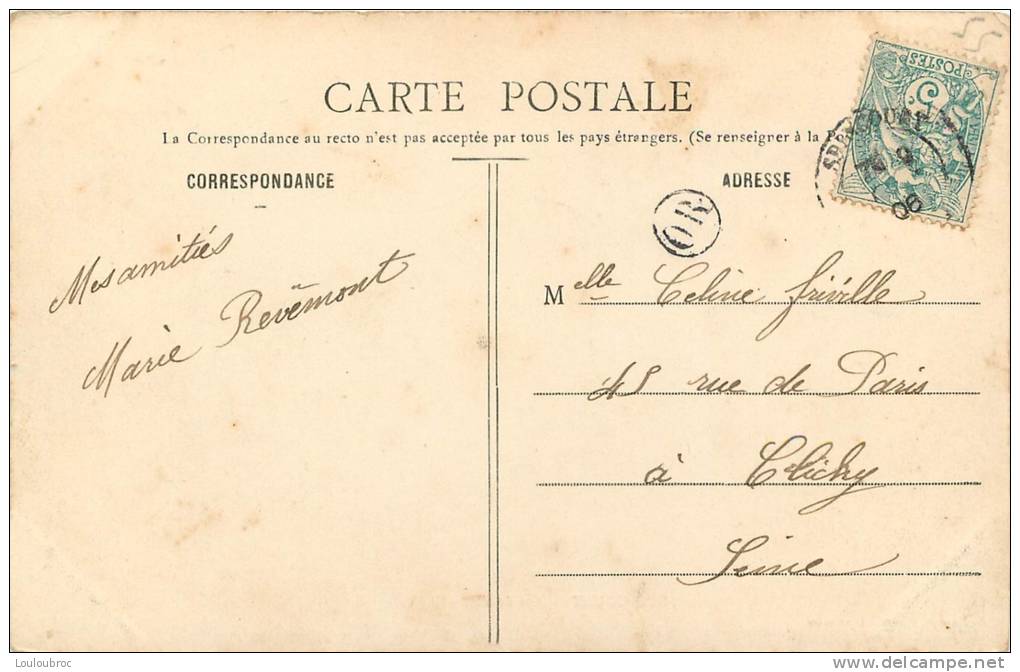 CARTE POSTALE
La Correspondance au recto n'est pas acceptée par tous les pays étrangers. (Se renseigner à la P
CORRESPONDANCE
ADRESSE
POSTES
5
06
OR
Mes amitiés
Marie Revêmont
Melle Celine Friville
45 rue de Paris
à Clichy
Seine
Louloubroc
www.delcampe.net